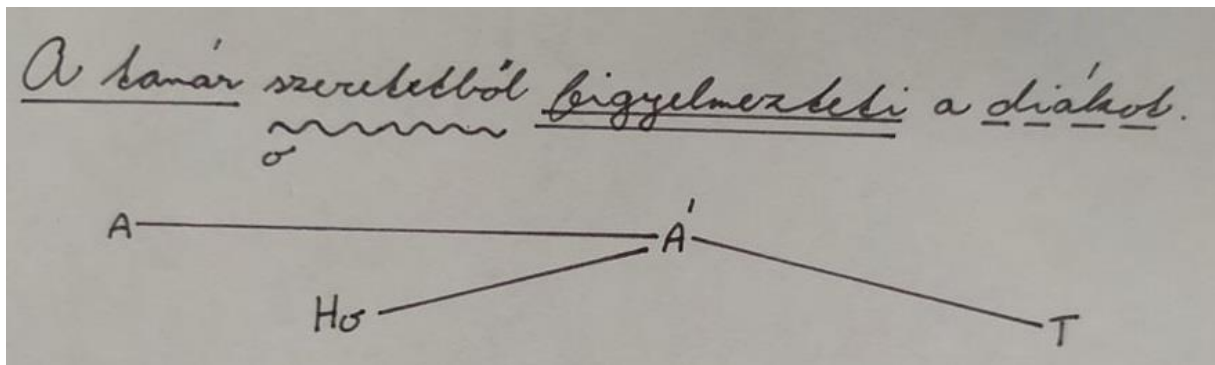 A tanár szeretetből figyelmezteti a diákot.
o
A Á
Ho T